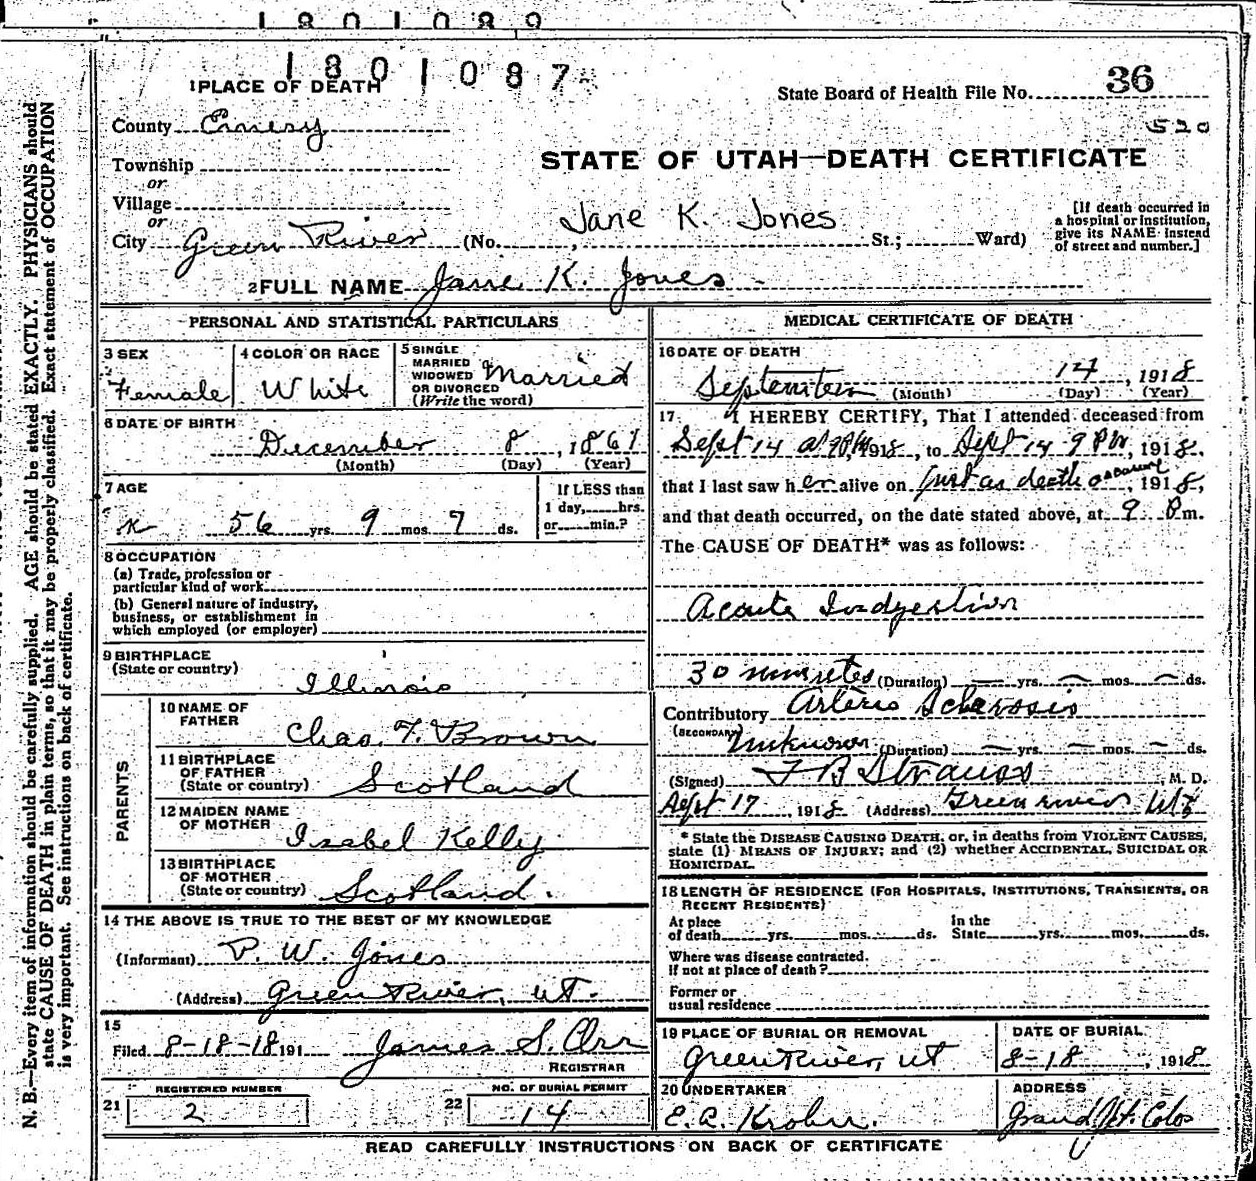 1801089
1801087
1 PLACE OF DEATH
State Board of Health File No. 36
520
County Emery
STATE OF UTAH—DEATH CERTIFICATE
Township
or
Village
or
City Green River (No. , Jane K. Jones St.; Ward)
[If death occurred in
a hospital or institution,
give its NAME instead
of street and number.]
2 FULL NAME Jane K. Jones
PERSONAL AND STATISTICAL PARTICULARS
3 SEX
Female
4 COLOR OR RACE
White
5 SINGLE
MARRIED
WIDOWED
OR DIVORCED
(Write the word)
Married
6 DATE OF BIRTH
December 8, 1861
(Month) (Day) (Year)
7 AGE
56 yrs. 9 mos. 7 ds.
If LESS than
1 day, hrs.
or min.?
8 OCCUPATION
(a) Trade, profession or
particular kind of work
(b) General nature of industry,
business, or establishment in
which employed (or employer)
9 BIRTHPLACE
(State or country)
Illinois
PARENTS
10 NAME OF
FATHER
Chas. F. Brown
11 BIRTHPLACE
OF FATHER
(State or country) Scotland
12 MAIDEN NAME
OF MOTHER
Izabel Kelly
13 BIRTHPLACE
OF MOTHER
(State or country) Scotland.
14 THE ABOVE IS TRUE TO THE BEST OF MY KNOWLEDGE
(Informant) P. W. Jones
(Address) Green River, Ut.
15
Filed 8-18-18 191 James S. Orr
REGISTRAR
REGISTERED NUMBER
21 2
NO. OF BURIAL PERMIT
22 14
MEDICAL CERTIFICATE OF DEATH
16 DATE OF DEATH
September 14, 1918
(Month) (Day) (Year)
17 I HEREBY CERTIFY, That I attended deceased from
Sept 14 at 1918, to Sept 14 9 PM, 1918,
that I last saw her alive on just as death , 1918,
and that death occurred, on the date stated above, at 9 Pm.
The CAUSE OF DEATH* was as follows:
Acute Indgestion
30 minutes (Duration) — yrs. — mos. — ds.
Contributory Arterio Sclerosis
(SECONDARY)
Unknown (Duration) — yrs. — mos. — ds.
(Signed) J B Strauss M. D.
Sept 17, 1918 (Address) Green river Ut
* State the DISEASE CAUSING DEATH, or, in deaths from VIOLENT CAUSES,
state (1) MEANS OF INJURY; and (2) whether ACCIDENTAL, SUICIDAL OR
HOMICIDAL.
18 LENGTH OF RESIDENCE (FOR HOSPITALS, INSTITUTIONS, TRANSIENTS, OR
RECENT RESIDENTS)
At place
of death yrs. mos. ds.
In the
State yrs. mos. ds.
Where was disease contracted.
If not at place of death?
Former or
usual residence
19 PLACE OF BURIAL OR REMOVAL
Green River, Ut
DATE OF BURIAL
8-18, 1918
20 UNDERTAKER
E. A. Krohn.
ADDRESS
Grand Jct. Colo
READ CAREFULLY INSTRUCTIONS ON BACK OF CERTIFICATE
N. B.—Every item of information should be carefully supplied. AGE should be stated EXACTLY. PHYSICIANS should
state CAUSE OF DEATH in plain terms, so that it may be properly classified. Exact statement of OCCUPATION
is very important. See instructions on back of certificate.